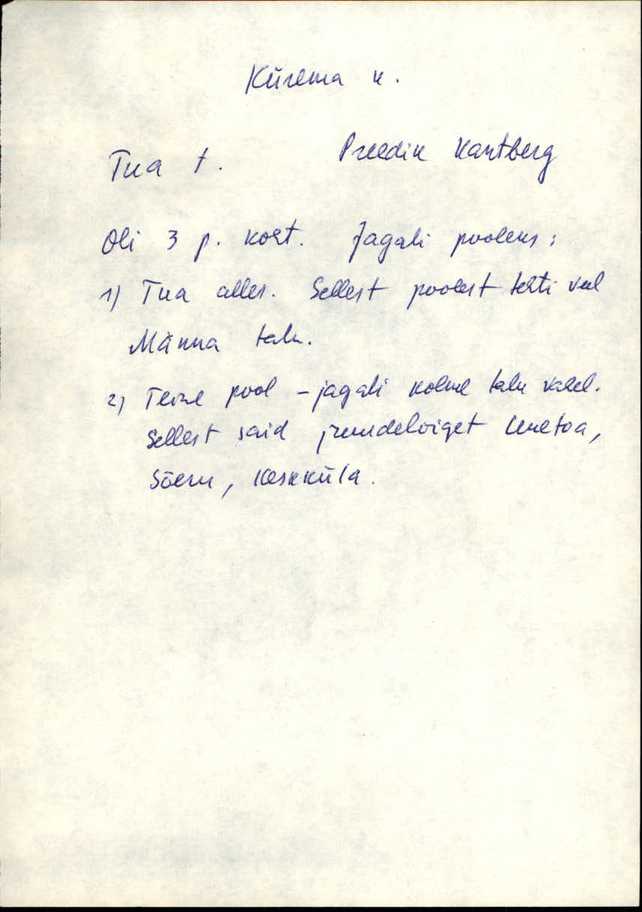 Kürema k.
Tua t. Preedik Kantberg
Oli 3 p. koht. Jagati pooleks:
1) Tua alles. Sellest poolest tehti veel
Männa talu.
2) Teine pool - jagati kolme talu vahel.
Sellest said juurdelõiget Uuetoa,
Sõeru, Keskküla.